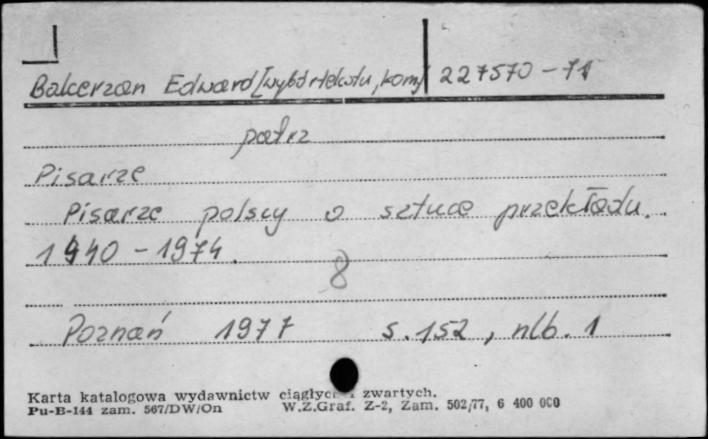 Balcerzan Edward [wybór tekstu, kom] 227570-71
patrz
Pisarze
Pisarze polscy o sztuce przekładu.
1440-1974.
8
Poznań 1977 s. 152, nlb. 1
Karta katalogowa wydawnictw ciągłych i zwartych.
Pu-B-144 zam. 567/DW/On W.Z.Graf. Z-2, Zam. 502/77, 6 400 000